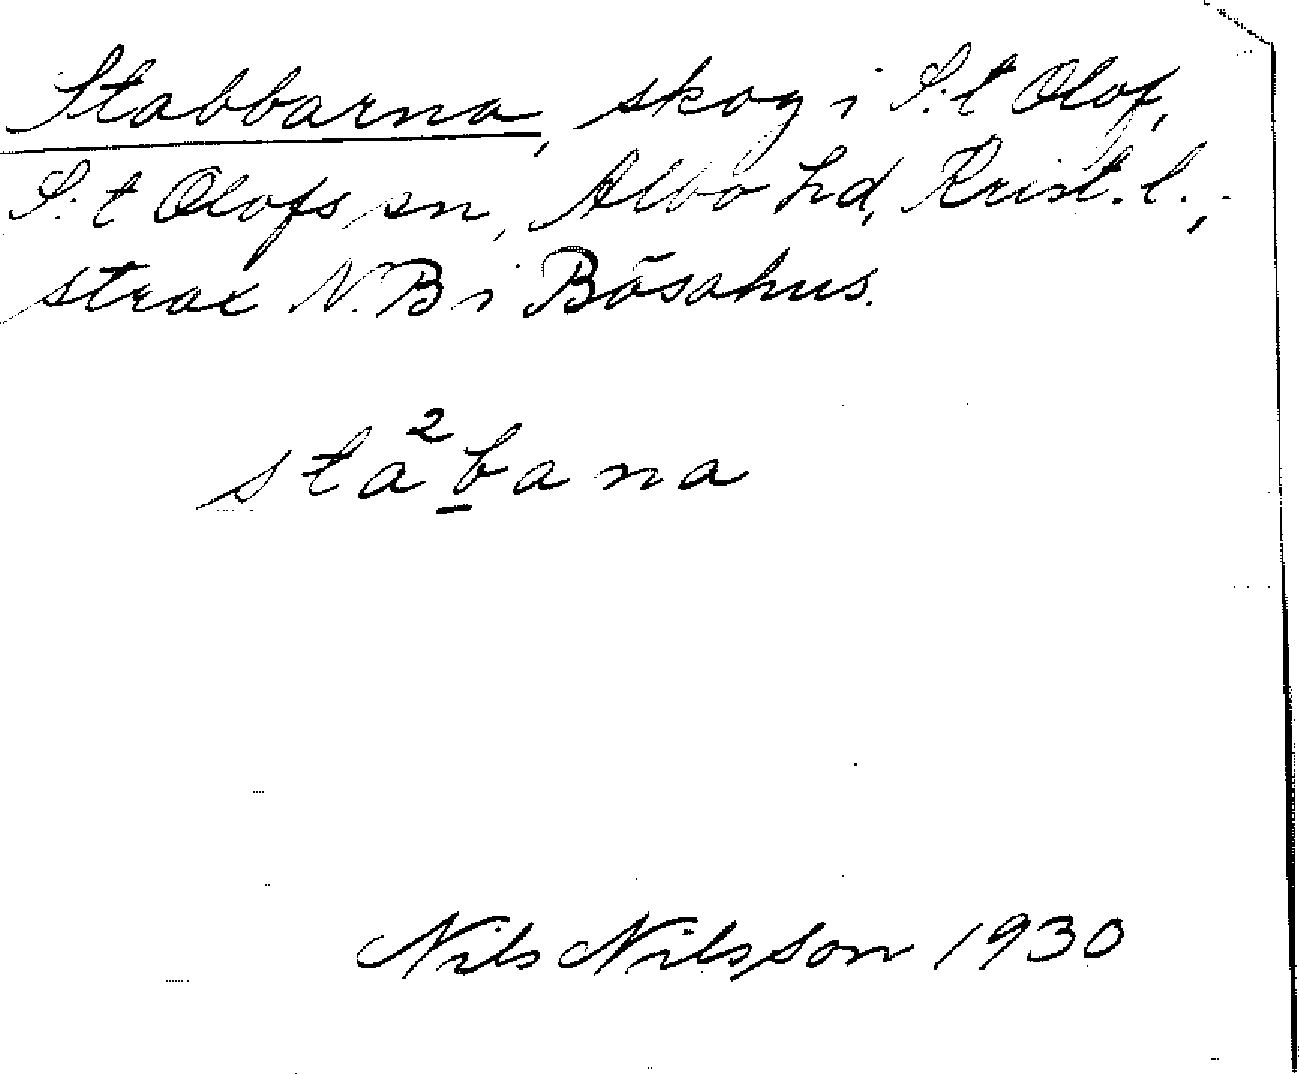 Stabbarna, skog i S:t Olof,
S:t Olofs sn, Albo hd, Krist. l.,
strax N. B i Båsahus.
sta²b̲ana
Nils Nilsson 1930